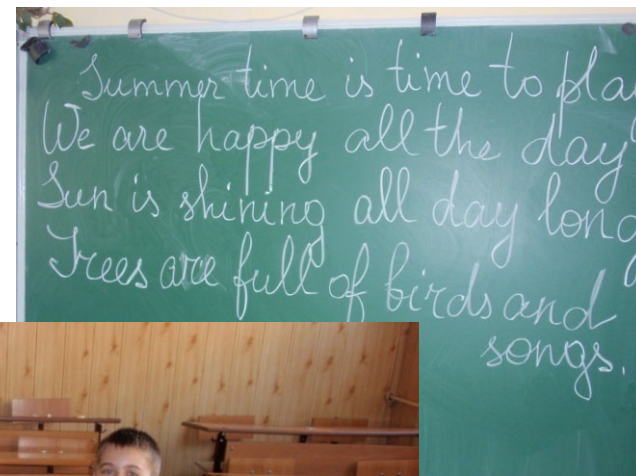 Summer time is time to pla
We are happy all the day
Sun is shining all day long
Trees are full of birds and
songs.